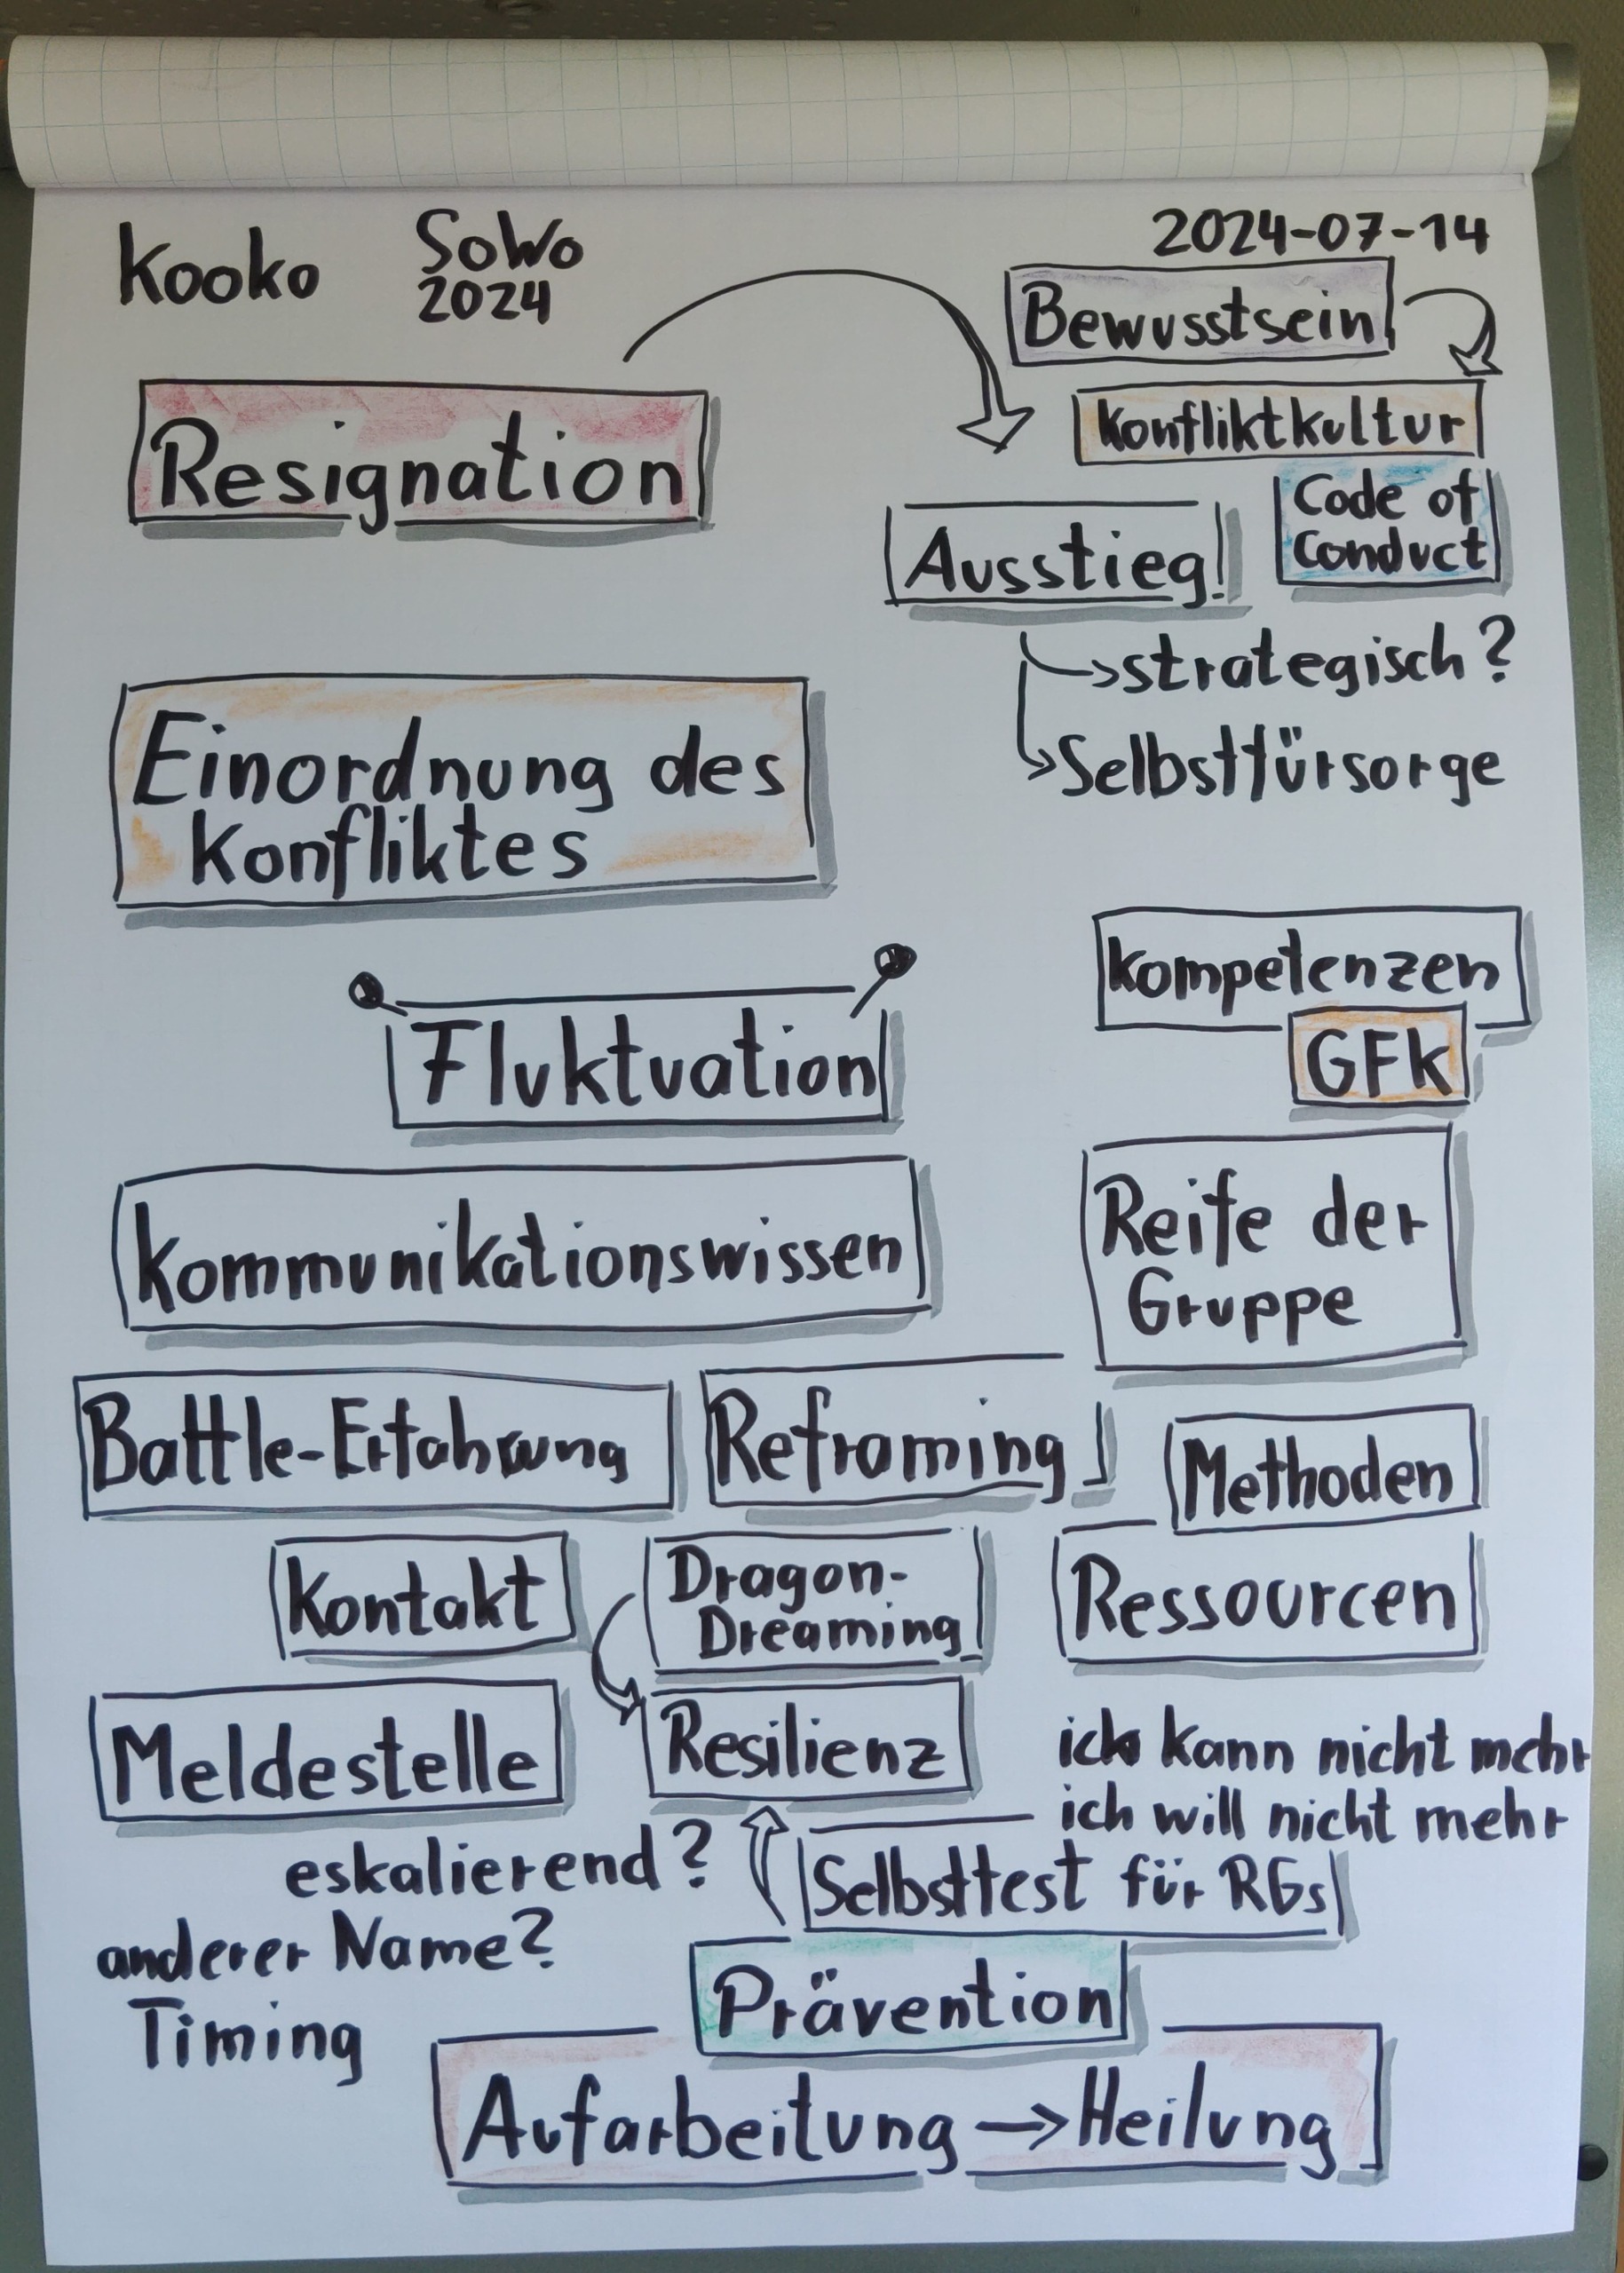 Kooko
SoWo
2024
2024-07-14
Bewusstsein
Konfliktkultur
Code of
Conduct
Resignation
Ausstieg!
→strategisch?
↳Selbstfürsorge
Einordnung des
Konfliktes
Kompetenzen
GFK
Fluktuation
Kommunikationswissen
Reife der
Gruppe
Battle-Erfahrung
Reframing
Methoden
Kontakt
Dragon-
Dreaming
Ressourcen
Meldestelle
Resilienz
ich kann nicht mehr
ich will nicht mehr
eskalierend?
Selbsttest für RGs
anderer Name?
Timing
Prävention
Aufarbeitung → Heilung